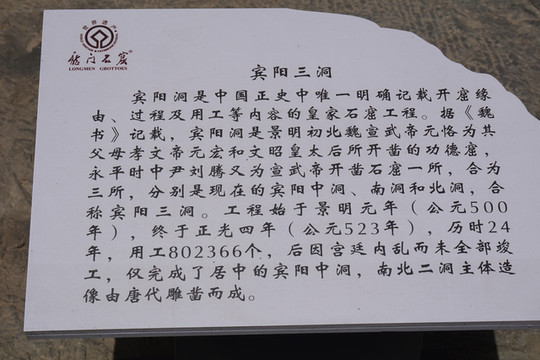 世界遗产
龙门石窟
LONGMEN GROTTOES
宾阳三洞
宾阳洞是中国正史中唯一明确记载开窟缘
由、过程及用工等内容的皇家石窟工程。据《魏
书》记载，宾阳洞是景明初北魏宣武帝元恪为其
父母孝文帝元宏和文昭皇太后所开凿的功德窟，
永平时中尹刘腾又为宣武帝开凿石窟一所，合为
三所，分别是现在的宾阳中洞、南洞和北洞，合
称宾阳三洞。工程始于景明元年（公元500
年），终于正光四年（公元523年），历时24
年，用工802366个，后因宫廷内乱而未全部竣
工，仅完成了居中的宾阳中洞，南北二洞主体造
像由唐代雕凿而成。